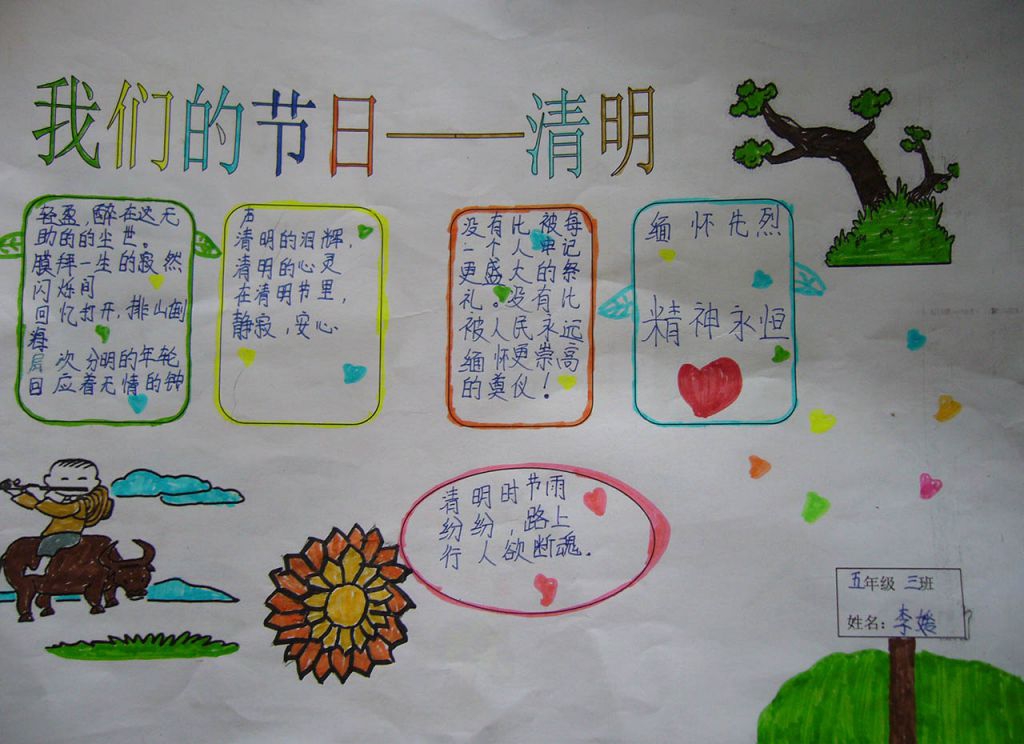 我们的节日——清明
轻盈,醉在这无
助的的尘世。
膜拜一生的寂然
闪烁间
回忆打开,排山倒
海
次分明的年轮
回应着无情的钟
声
清明的泪辉,
清明的心灵
在清明节里,
静寂,安心
没有比被每
一个人牢记
更盛大的祭
礼。没有比
被人民永远
缅怀更崇高
的奠仪!
缅怀先烈
精神永恒
清明时节雨
纷纷,路上
行人欲断魂.
五年级 三班
姓名:李